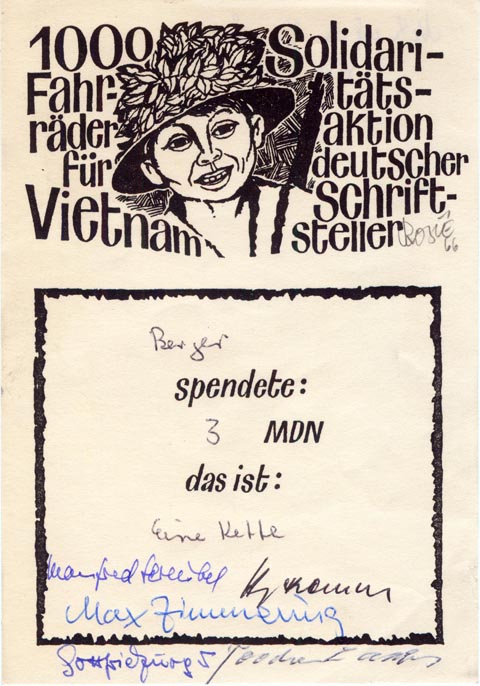 1000
Fahr-
räder
für
Vietnam
Solidari-
täts-
aktion
deutscher
Schrift-
steller
66
Berger
spendete:
3 MDN
das ist:
Eine Kette
Manfred
Max Zimmering